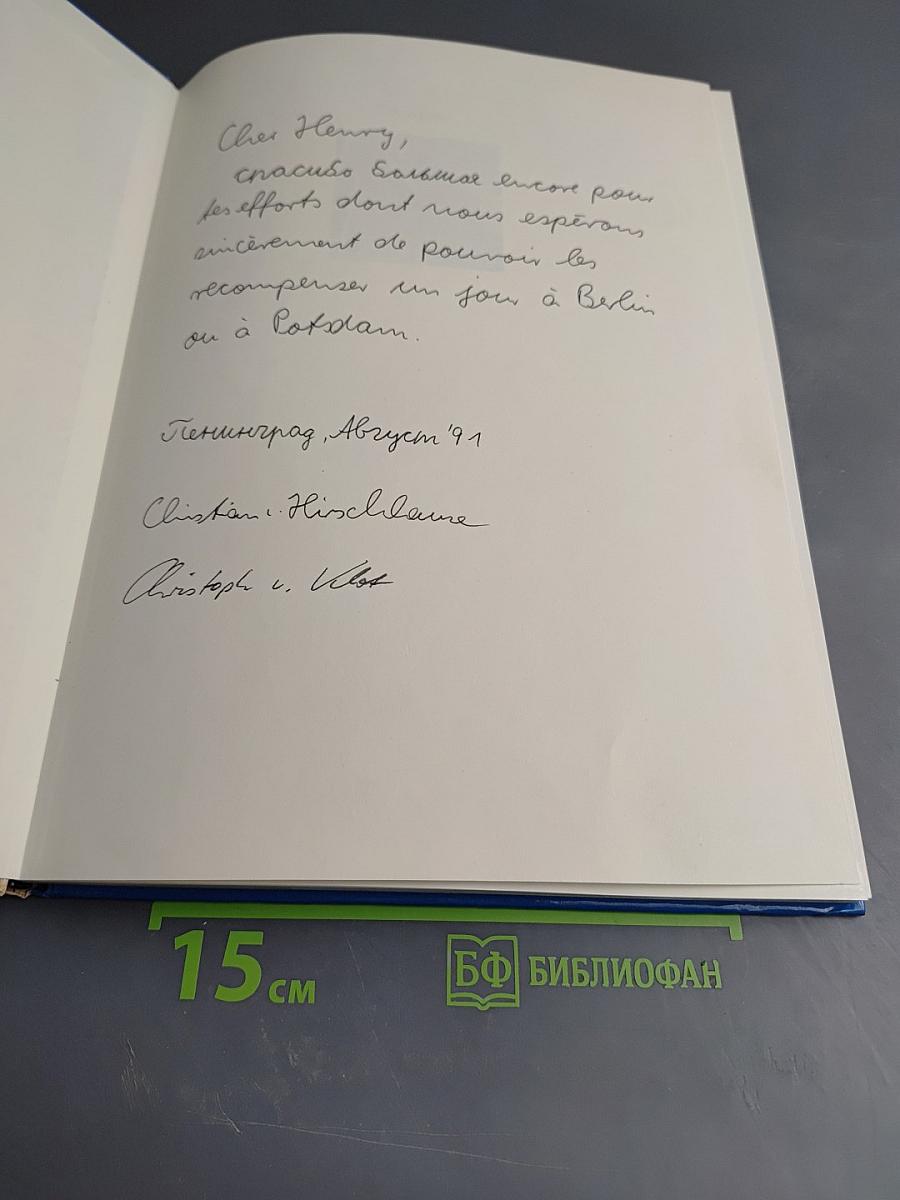 Cher Henry,
спасибо большое encore pour
tes efforts dont nous espérons
sincèrement de pouvoir les
recompenser un jour à Berlin
ou à Potsdam.
Ленинград, Август '91
Christian v. Hirschhause
Christoph v. Klot
15 см
БФ БИБЛИОФАН